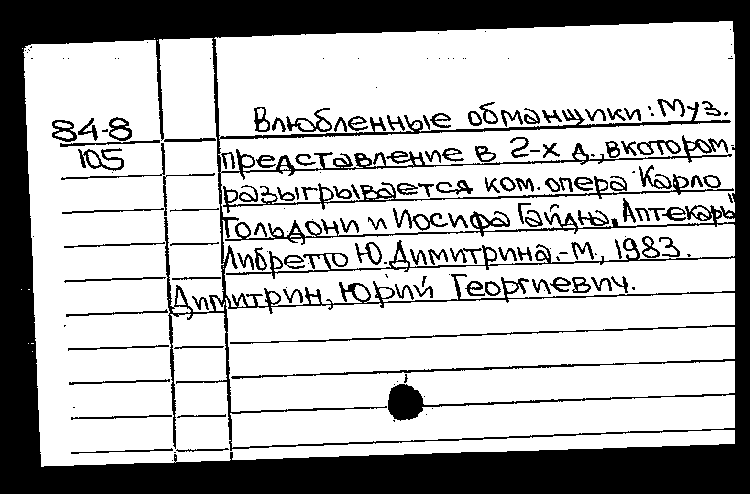 84-8
105
Влюбленные обманщики: Муз.
представление в 2-х д., в котором
разыгрывается ком. опера Карло
Гольдони и Иосифа Гайдна „Аптекарь"
Либретто Ю. Димитрина.-М., 1983.
Димитрин, Юрий Георгиевич.